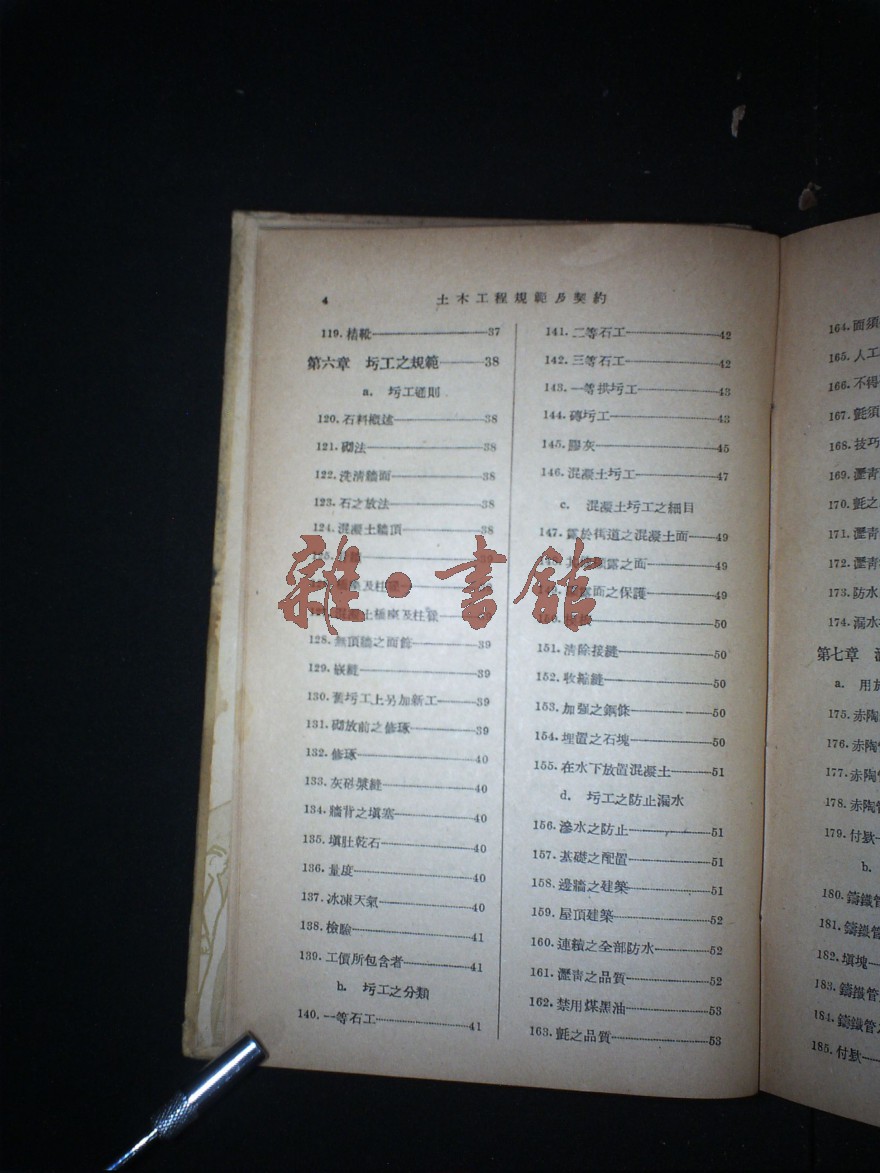 4
土木工程規範及契約
119. 樁靴 37
第六章 圬工之規範 38
a. 圬工通則
120. 石料概述 38
121. 砌法 38
122. 洗清牆面 38
123. 石之放法 38
124. 混凝土牆頂 38
座及柱
混凝土橋座及柱
128. 無頂牆之面飾 39
129. 嵌縫 39
130. 舊圬工上另加新工 39
131. 砌放前之修琢 39
132. 修琢 40
133. 灰砂漿縫 40
134. 牆背之塡塞 40
135. 塡肚乾石 40
136. 量度 40
137. 冰凍天氣 40
138. 檢驗 41
139. 工價所包含者 41
b. 圬工之分類
140. 一等石工 41
141. 二等石工 42
142. 三等石工 42
143. 一等拱圬工 43
144. 磚圬工 43
145. 膠灰 45
146. 混凝土圬工 47
c. 混凝土圬工之細目
147. 露於街道之混凝土面 49
露之面 49
面之保護 49
50
151. 清除接縫 50
152. 收縮縫 50
153. 加强之鋼條 50
154. 埋置之石塊 50
155. 在水下放置混凝土 51
d. 圬工之防止漏水
156. 滲水之防止 51
157. 基礎之配置 51
158. 邊牆之建築 51
159. 屋頂建築 52
160. 連續之全部防水 52
161. 瀝靑之品質 52
162. 禁用煤黑油 53
163. 氈之品質 53
雜·書館
164. 面須
165. 人工
166. 不得
167. 氈須
168. 技巧
169. 瀝靑
170. 氈之
171. 瀝靑
172. 瀝靑
173. 防水
174. 漏水
第七章
a. 用於
175. 赤陶
176. 赤陶
177. 赤陶
178. 赤陶
179. 付欵
b.
180. 鑄鐵管
181. 鑄鐵
182. 塡塊
183. 鑄鐵管
184. 鑄鐵管
185. 付欵